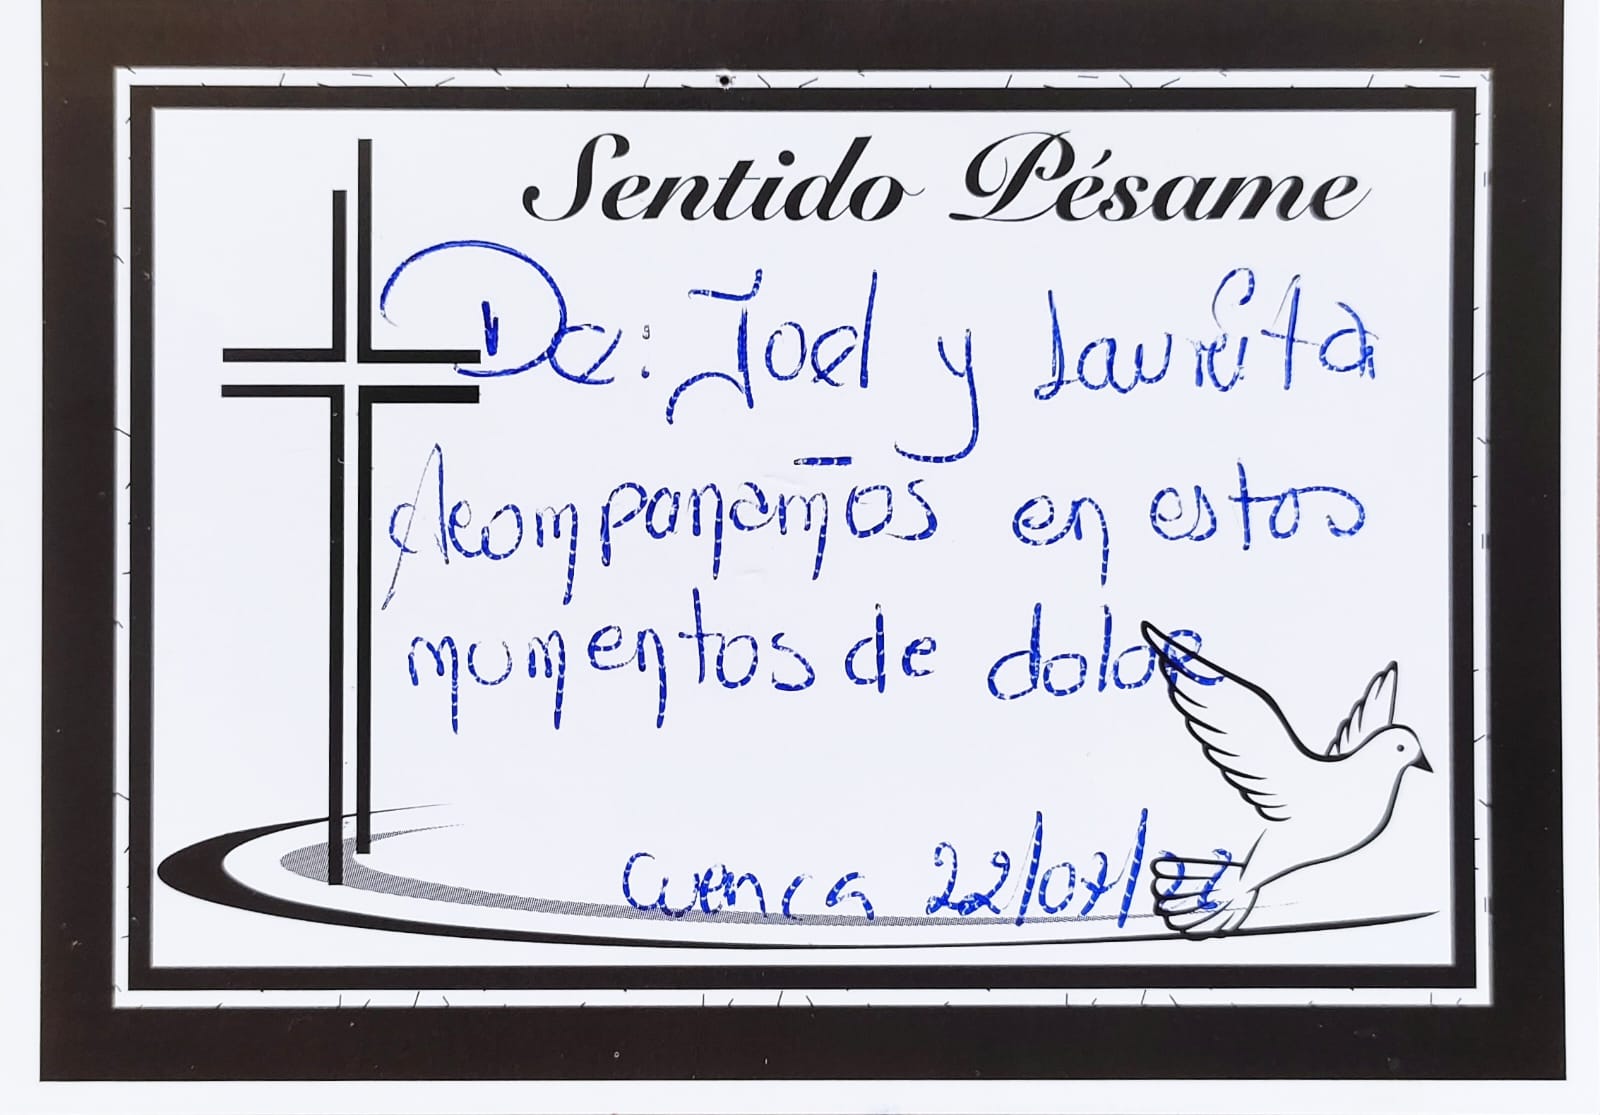 Sentido Pésame
De: Joel y Laurita
Acompanamos en estos
momentos de dolor
Cuenca 22/07/22